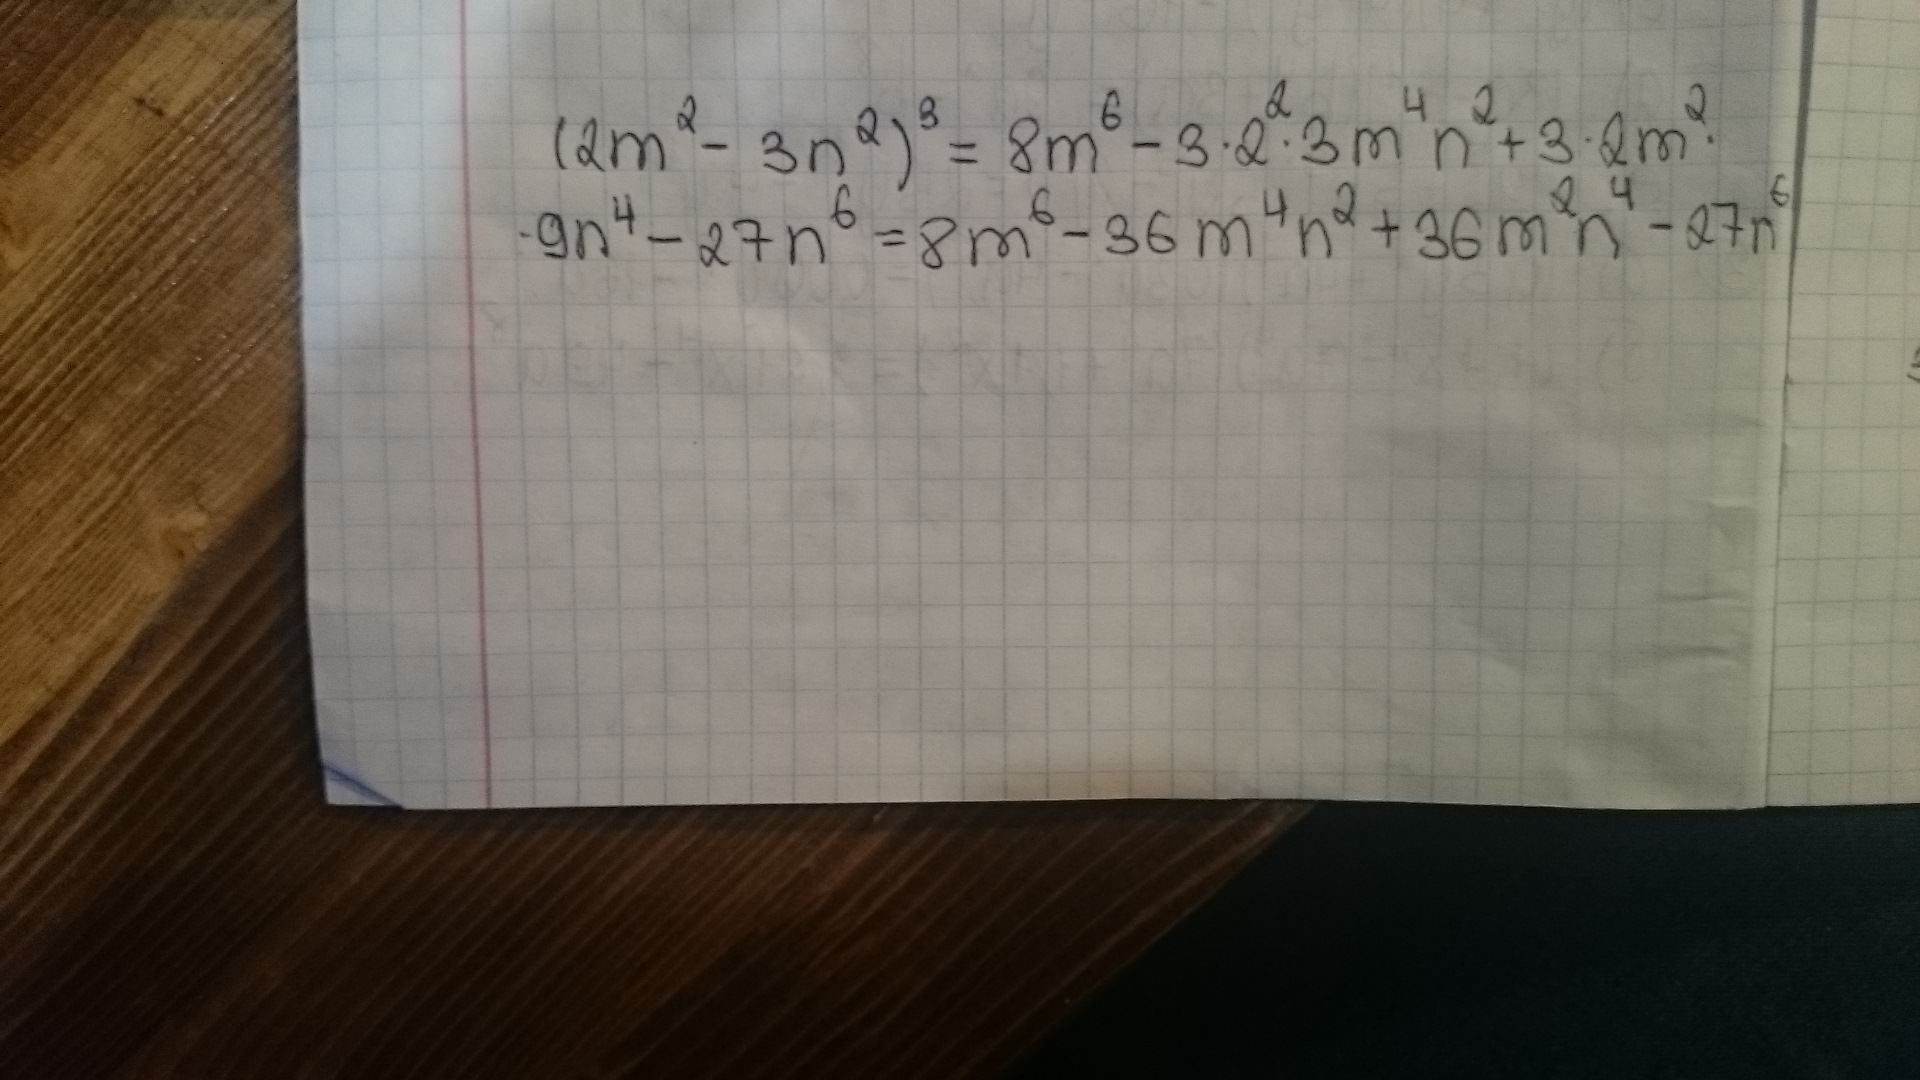 (2m² - 3n²)³ = 8m⁶ - 3·2²·3m⁴n² + 3·2m²·
·9n⁴ - 27n⁶ = 8m⁶ - 36m⁴n² + 36m²n⁴ - 27n⁶